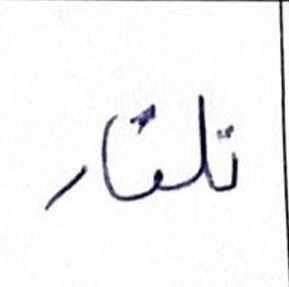 تلقار